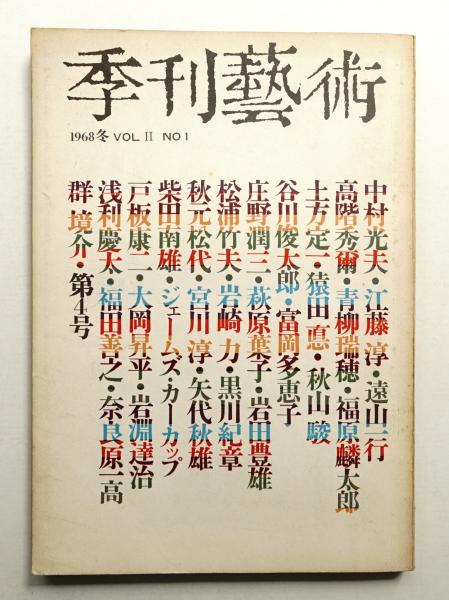 季刊藝術
1968冬 VOL II NO1
中村光夫・江藤 淳・遠山一行
高階秀爾・青柳瑞穂・福原麟太郎
土方定一・猿田 悳・秋山 駿
谷川俊太郎・富岡多恵子
庄野潤三・萩原葉子・岩田豊雄
松浦竹夫・岩崎 力・黒川紀章
秋元松代・宮川 淳・矢代秋雄
柴田南雄・ジェームズ・カーカップ
戸板康二・大岡昇平・岩淵達治
浅利慶太・福田善之・奈良原一高
群 境介・第4号